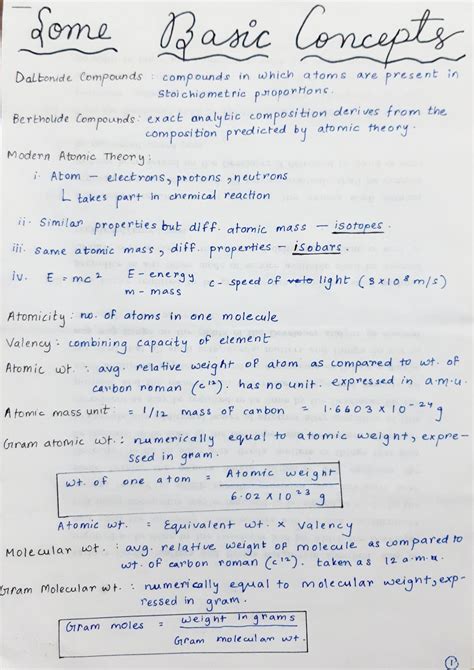 Some Basic Concepts
Daltonide Compounds : compounds in which atoms are present in
stoichiometric proportions.
Bertholide Compounds: exact analytic composition derives from the
composition predicted by atomic theory.
Modern Atomic Theory:
i. Atom — electrons, protons, neutrons
↳ takes part in chemical reaction
ii. Similar properties but diff. atomic mass — isotopes.
iii. same atomic mass, diff. properties — isobars.
iv. E = mc² E - energy c - speed of light (3×10⁸ m/s)
m - mass
Atomicity : no. of atoms in one molecule
Valency : combining capacity of element
Atomic wt. : avg. relative weight of atom as compared to wt. of
carbon roman (c¹²). has no unit. expressed in a.m.u.
Atomic mass unit : = 1/12 mass of carbon = 1.6603 × 10⁻²⁴ g
Gram atomic wt. : numerically equal to atomic weight, expre-
ssed in gram.
wt. of one atom = Atomic weight
6.02 × 10²³ g
Atomic wt. = Equivalent wt. × Valency
Molecular wt. : avg. relative weight of molecule as compared to
wt. of carbon roman (c¹²). taken as 12 a.m.u.
Gram Molecular wt. : numerically equal to molecular weight, exp-
ressed in gram.
Gram moles = weight in grams
Gram molecular wt.
1